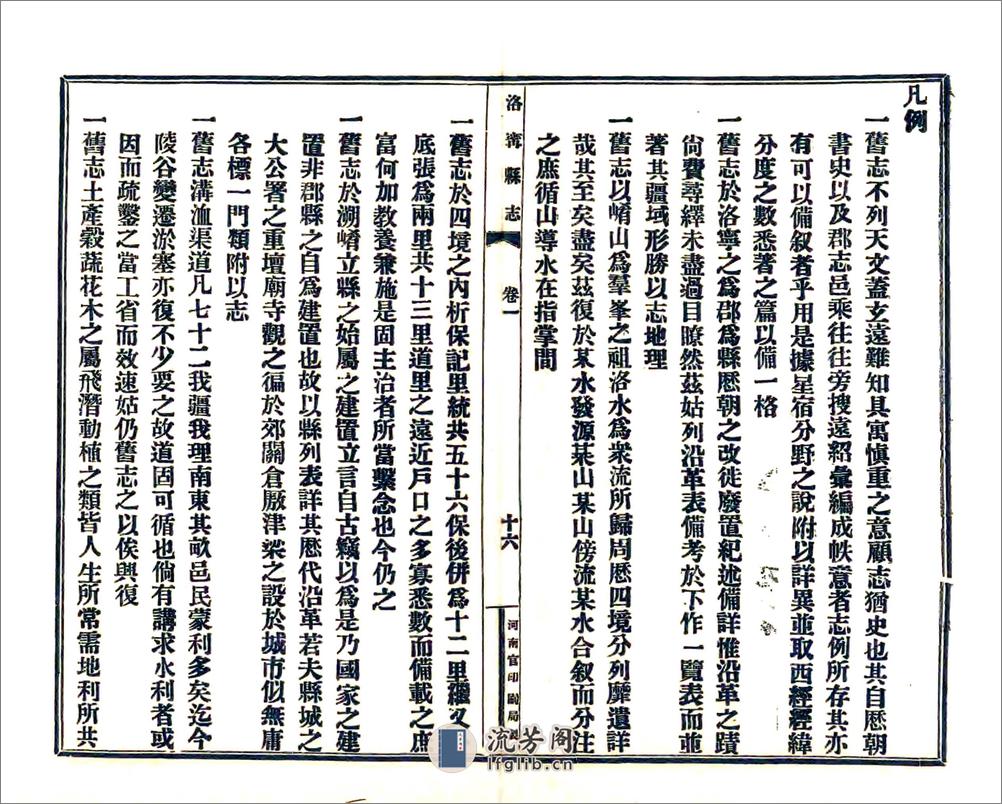 凡例
一舊志不列天文蓋玄遠難知具寓慎重之意顧志猶史也其自厯朝
書史以及郡志邑乘往往旁搜遠紹彙編成帙意者志例所存其亦
有可以備叙者乎用是據星宿分野之說附以詳異並取西經經緯
分度之數悉著之篇以備一格
一舊志於洛寧之為郡為縣厯朝之改徙廢置紀述備詳惟沿革之蹟
尙費尋繹未盡過目瞭然茲姑列沿革表備考於下作一覽表而並
著其疆域形勝以志地理
一舊志以崤山為羣峯之祖洛水為衆流所歸周厯四境分列靡遺詳
哉其至矣盡矣茲復於某水發源某山某山傍流某水合叙而分注
之庶循山導水在指掌間
洛甯縣志
卷一
十六
河南官印刷局
一舊志於四境之內析保記里統共五十六保後併爲十二里繼又
底張爲兩里共十三里道里之遠近戶口之多寡悉數而備載之庶
富何加教養兼施是固主治者所當繫念也今仍之
一舊志於溯崤立縣之始屬之建置立言自古竊以為是乃國家之建
置非郡縣之自為建置也故以縣列表詳其厯代沿革若夫縣城之
大公署之重壇廟寺觀之徧於郊關倉厫津梁之設於城市似無庸
各標一門類附以志
一舊志溝洫渠道凡七十二我疆我理南東其畝邑民蒙利多矣迄今
陵谷變遷淤塞亦復不少要之故道固可循也倘有講求水利者或
因而疏鑿之當工省而效速姑仍舊志之以俟興復
一舊志土產穀蔬花木之屬飛潛動植之類皆人生所常需地利所共
流芳阁
lfglib.cn